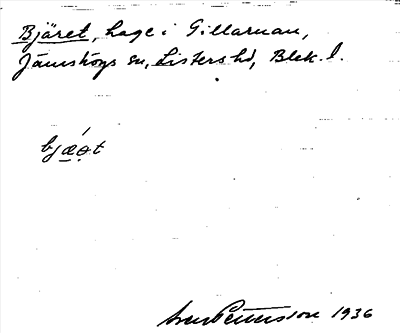 Bjäret, hage i Gillaruan,
Jämshögs sn, Listers hd, Blek. l.
bjǽǝt
Sven Pettersson 1936